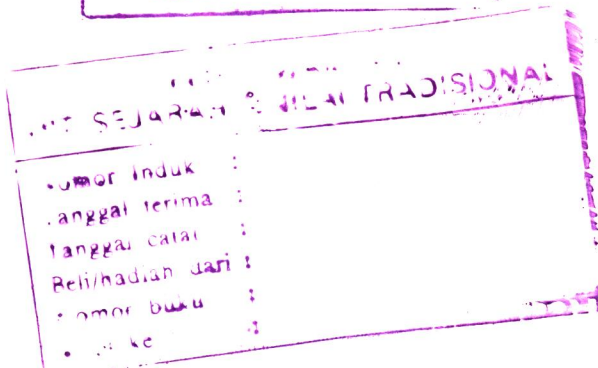 SEJARAH & NILAI TRADISIONAL
Nomor Induk :
Tanggal terima :
Tanggal catat :
Beli/hadiah dari :
Nomor buku :
ke :